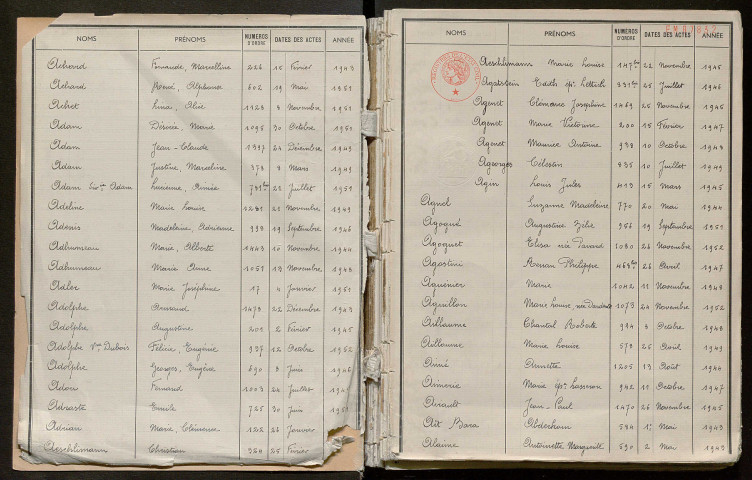 NOMS PRÉNOMS NUMEROS D'ORDRE DATES DES ACTES ANNÉE
Achard Fernande, Marcelline 226 15 Février 1943
Achard René, Alphonse 602 19 Mai 1951
Achet 1428 8 Novembre 1951
Adam Désirée, Marie 1095 30 Octobre 1951
Adam Jean-Claude 1397 24 Décembre 1949
Adam Justine, Marceline 373 8 Mars 1949
Adam Lucienne, Aimée 22 Juillet 1951
Adeline Marie Louise 1281 21 Novembre 1949
Adenis Madeleine, Adrienne 998 19 Septembre 1946
Adhumeau Marie, Alberte 1443 10 Novembre 1944
Adhumeau Marie Anne 1051 13 Novembre 1948
Adler Marie Joséphine 17 4 Janvier 1951
Adolphe Armand 1473 22 Décembre 1943
Adolphe Augustine 201 2 Février 1945
Adolphe Vve Dubois Félicie, Eugénie 937 12 Octobre 1952
Adolphe Georges, Eugène 690 8 Juin 1946
Adou Fernand 1003 24 Juillet
Adraste Emile 725 30 Juin
Adrian Marie, Clémence 122 26 Janvier
Aeschlimann Christian 324 25 Février
NOMS PRÉNOMS NUMEROS D'ORDRE DATES DES ACTES ANNÉE
Aeschlimann Marie Louise 147 bis 22 Novembre 1945
Edith ép. 25 Juillet 1946
Agenet Clémence Joséphine 1469 25 Novembre 1945
Agenet Marie Victorine 200 15 Février 1947
Agenet Maurice Antoine 938 10 Octobre 1948
Ageorges Célestin 835 10 Juillet 1949
Agin Louis Jules 413 15 Mars 1945
Agnel Suzanne Madeleine 770 20 Mai 1944
Agogué Augustine Zélie 956 19 Septembre 1950
Agoguet Elisa née 1080 26 Novembre 1952
Agostini Philippe 26 Avril 1947
Aguenier Marie 1042 11 Novembre 1948
Aguillon Marie Louise née 1073 24 Novembre 1952
Aillaume Chantal Roberte 994 3 Octobre 1948
Aillaume Marie Louise 579 25 Avril 1949
Aimé Annette 1205 13 Août 1944
Aimerie Marie ép. 942 11 Octobre 1947
Airault Jean-Paul 1470 26 Novembre 1945
Ait Bara Abderham 594 1er Mai 1943
Alaime Antoinette Marguerite 590 2 Mai 1943